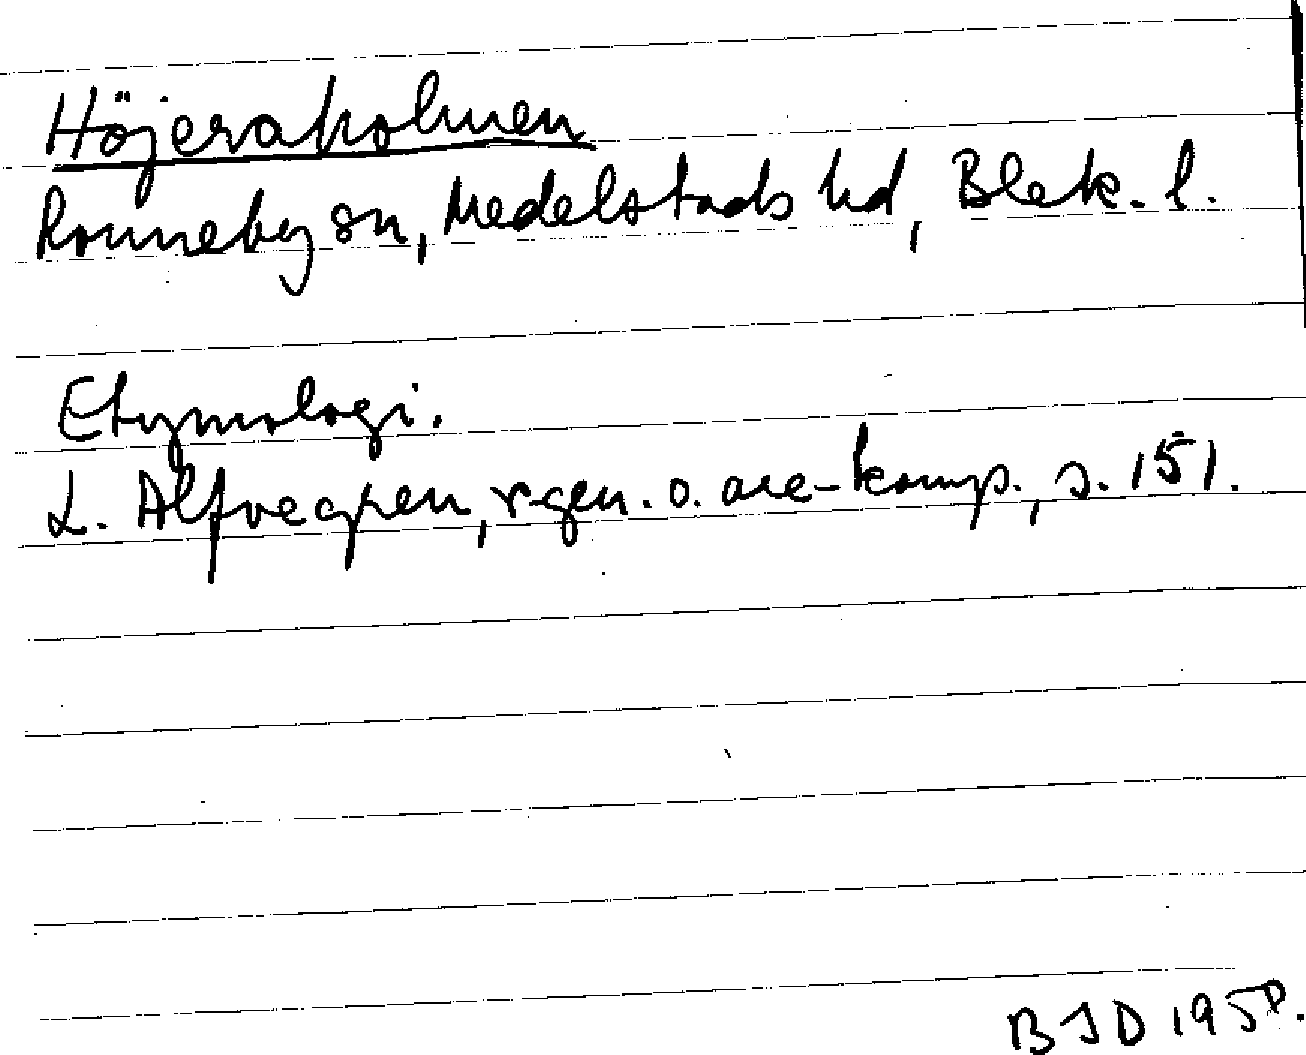 Höjeraholmen
Ronneby sn, Medelstads hd, Blek. l.
Etymologi.
L. Alfvegren, r-gen. o. are-komp., s. 151.
BJD 1950.